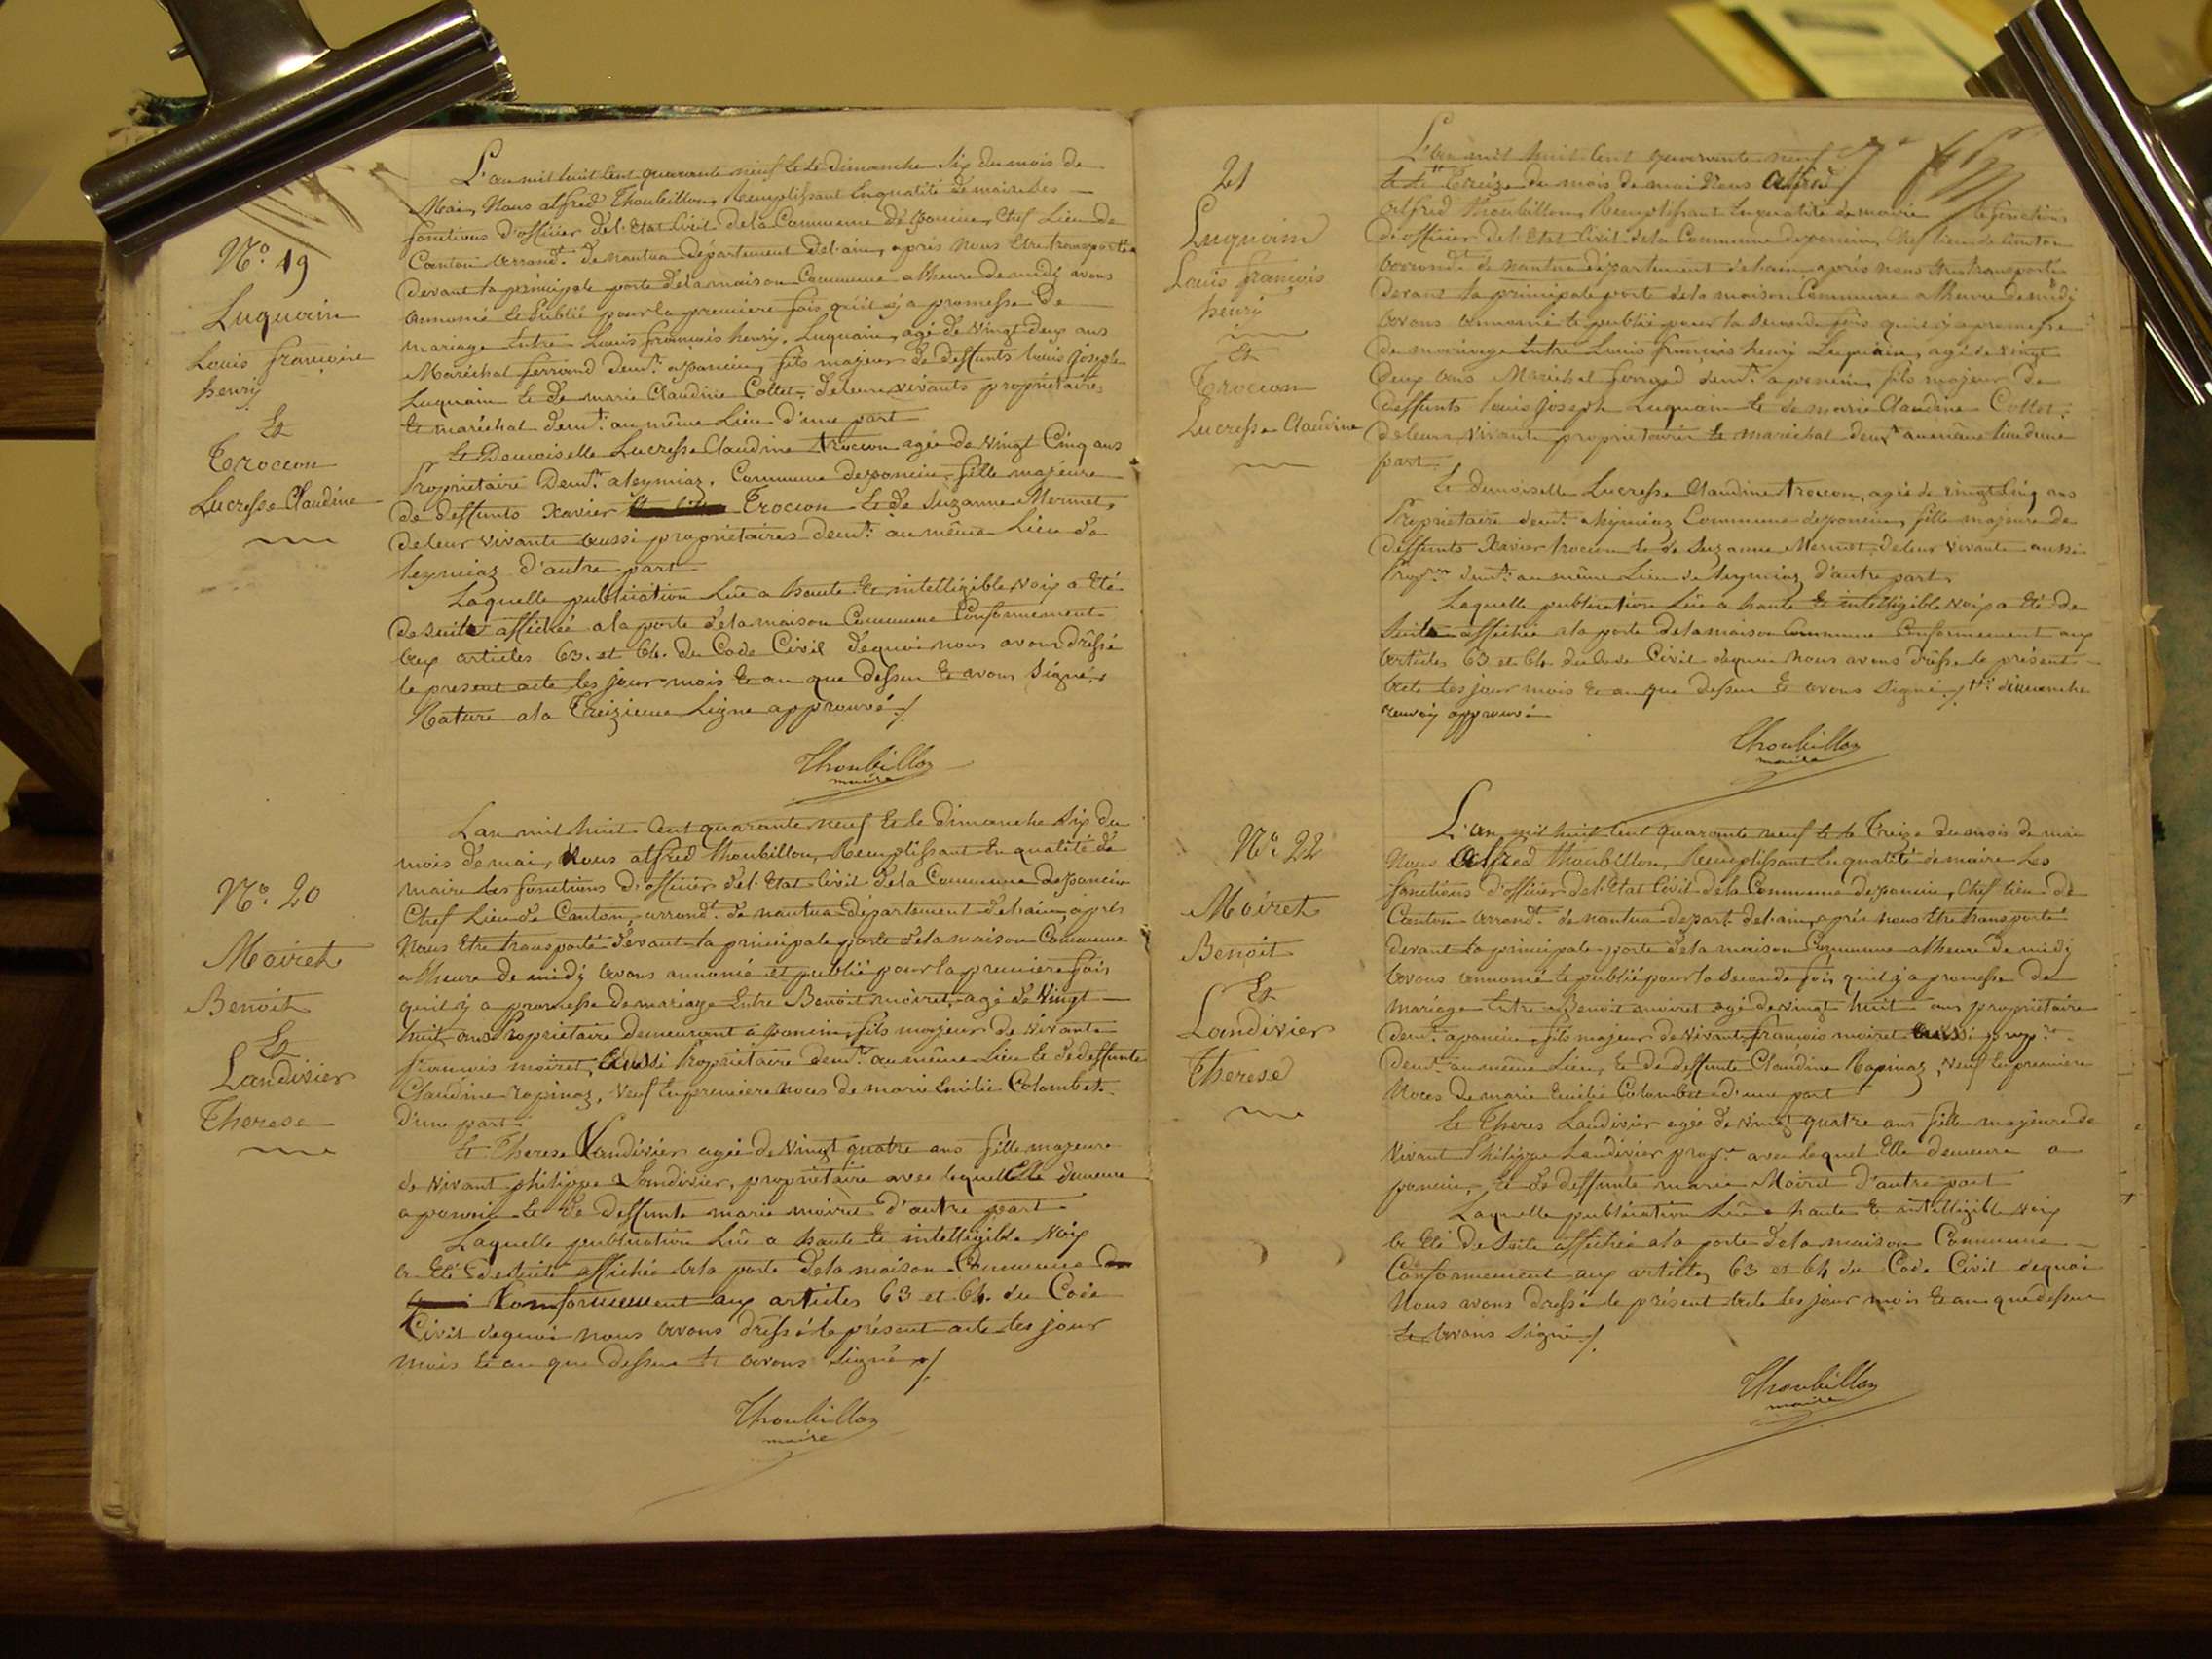 N.º 19
Luquain
Louis françois
henry
Et
Trocon
Lucresse Claudine
L'an mil huit Cent quarante neuf Et le dimanche Six du mois de
Mai, Nous alfred Thoubillon, Remplissant En qualité de maire Les
fonctions d'officier de l'Etat Civil de la Commune de poncin, Chef Lieu de
Canton arrond.t de nantua département de l'ain, après nous Etre transporté
devant la principale porte de la maison Commune a l'heure de midi avons
annoncé Et Publié pour la premiere fois qu'il y a promesse de
mariage Entre Louis francois henry Luquain, agé de vingt deux ans
Maréchal ferrand dem.t a poncin, fils majeur de deffunts Louis Joseph
Luquain Et de marie Claudine Collet, de leur vivants propriétaires
Et maréchal dem.t au même Lieu d'une part
Et Demoiselle Lucresse Claudine trocon agée de vingt Cinq ans
Propriétaire Dem.t a leymiaz, Commune de poncin, fille majeure
de deffunts Xavier Trocon Et de Suzanne Mermet,
de leur vivants aussi propriétaires dem.t au même Lieu de
leymiaz d'autre part
Laquelle publication Lue a haute Et intelligible voix a Eté
de suite affichée a la porte de la maison Commune Conformement
aux articles 63. et 64. du Code Civil de quoi nous avons dréssé
le present acte les jour mois Et an que dessus Et avons Signé,
Rature a la Treizieme Ligne approuvé ./.
Thoubillon
maire
N.º 20
Moiret
Benoit
Et
Landivier
Therese
L'an mil huit Cent quarante neuf Et le dimanche Six du
mois de mai, Nous alfred thoubillon, Remplissant En qualité de
maire Les fonctions d'officier de l'Etat Civil de la Commune de poncin
Chef Lieu de Canton, arrond.t de nantua département de l'ain, après
Nous Etre transporté devant la principale porte de la maison Commune
a l'heure de midi avons annoncé et publié pour la premiere fois
qu'il y a promesse de mariage Entre Benoit moiret, agé de Vingt
huit ans Propriétaire demeurant a poncin, fils majeur de vivant
francois moiret, aussi Propriétaire dem.t au même Lieu Et de deffunte
Claudine rapinaz, Veuf En premiere noces de marie Emilie Colombet
d'une part
Et Therese Landivier agée de vingt quatre ans fille majeure
de vivant philippe Landivier, propriétaire avec lequel Elle demeure
a poncin Et de deffunte marie moiret d'autre part
Laquelle publication Lue a haute Et intelligible voix
a Eté de suite affichée a la porte de la maison Commune
Conformement aux articles 63 et 64. du Code
Civil de quoi nous avons dréssé le présent acte les jour
mois Et an que dessus Et avons Signé ./.
Thoubillon
maire
21
Luquain
Louis françois
henri
Et
Trocon
Lucresse Claudine
L'an mil huit Cent quarante neuf
Et le Treize du mois de mai Nous alfred
alfred thoubillon, Remplissant En qualité de maire les fonctions
d'officier de l'Etat Civil de la Commune de poncin, Chef lieu de Canton
arrond.t de nantua département de l'ain, après nous Etre transporté
devant la principale porte de la maison Commune a l'heure de midi
avons annoncé Et publié pour la seconde fois qu'il y a promesse
de mariage Entre Louis françois henri Luquain, agé de vingt
Deux ans Maréchal ferrand dem.t a poncin, fils majeur de
deffunts Louis Joseph Luquain Et de marie Claudine Collet,
de leurs vivants propriétaires Et maréchal dem.t au même lieu d'une
part
Et demoiselle Lucresse Claudine trocon, agée de vingt Cinq ans
Propriétaire dem.t a leymiaz Commune de poncin, fille majeure de
deffunts Xavier trocon Et de Suzanne Mermet, de leur vivants aussi
Prop.res dem.t au même Lieu de leymiaz d'autre part.
Laquelle publication Lue a haute Et intelligible voix a Eté de
suite affichée a la porte de la maison Commune Conformement aux
articles 63 et 64 du Code Civil de quoi nous avons dréssé le présent
acte les jour mois Et an que dessus Et avons Signé ./. dimanche
renvoi approuvé
Thoubillon
maire
N.º 22
Moiret
Benoit
Et
Landivier
Therese
L'an mil huit Cent quarante neuf Et le Treize du mois de mai
Nous alfred thoubillon, Remplissant En qualité de maire Les
fonctions d'officier de l'Etat Civil de la Commune de poncin, Chef lieu de
Canton arrond.t de nantua départ. de l'ain, après nous Etre transporté
devant la principale porte de la maison Commune a l'heure de midi
avons annoncé Et publié pour la seconde fois qu'il y a promesse de
mariage Entre Benoit moiret agé de vingt huit ans propriétaire
dem.t a poncin, fils majeur de vivant françois moiret aussi prop.re
dem.t au même Lieu, Et de deffunte Claudine Rapinaz, veuf En premiere
Noces de marie Emilie Colombet d'une part
Et Theres Landivier agée de vingt quatre ans fille majeure de
vivant Philippe Landivier prop.re avec lequel Elle demeure a
poncin, Et de deffunte marie Moiret d'autre part
Laquelle publication Lue a haute Et intelligible voix
a Eté de suite affichée a la porte de la maison Commune
Conformement aux articles 63 et 64 du Code Civil de quoi
Nous avons dréssé le présent acte les jour mois Et an que dessus
Et avons Signé ./.
Thoubillon
maire